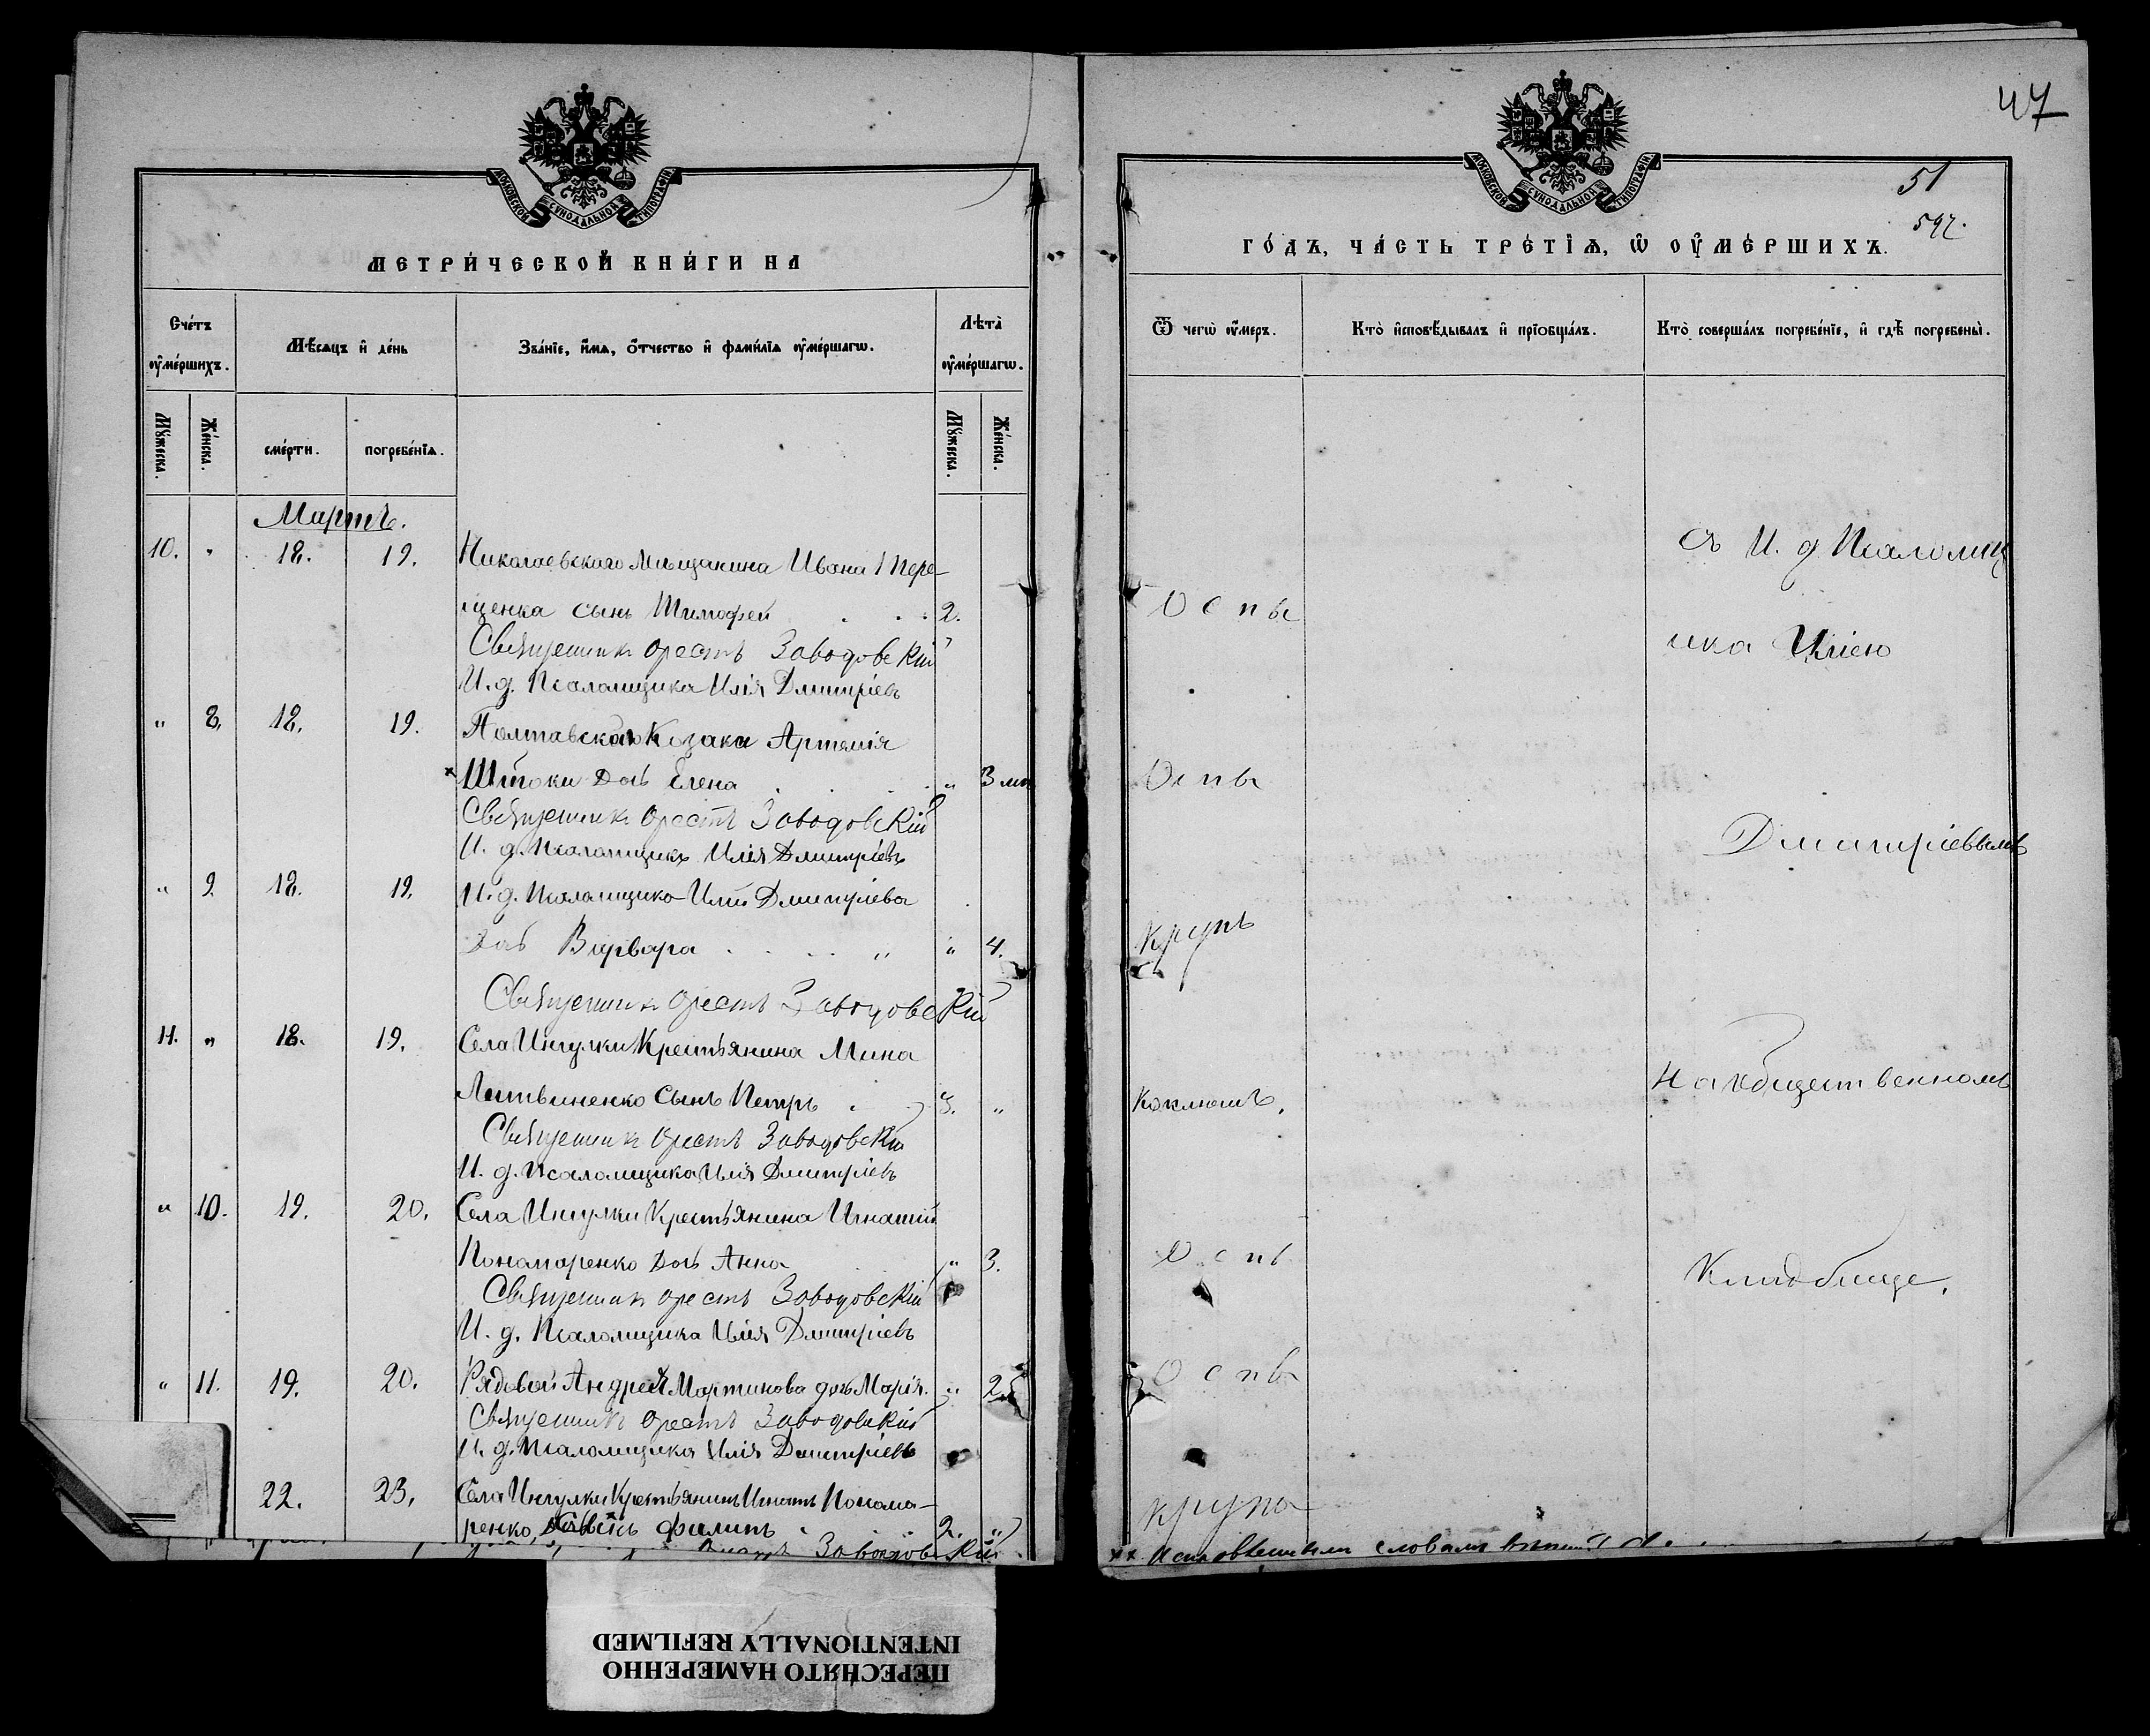 МОСКОВСКОЙ СУНОДАЛЬНОЙ ТИПОГРАФІИ
МЕТРИ́ЧЕСКОЙ КНИ́ГИ НА
Сче́тъ ѹ҆ме́ршихъ.
Мѣ́сяцъ и҆ де́нь
Зва́нїе, и҆́мѧ, ѻ҆́тчество и҆ фами́лїѧ ѹ҆ме́ршагѡ.
Лѣ́та ѹ҆ме́ршагѡ.
Мꙋ́жеска.
Же́нска.
сме́рти.
погребе́нїѧ.
Мꙋ́жеска.
Же́нска.
Мартъ.
10. " 18. 19. Николаевского мѣщанина Ивана
щенка сынъ Тимофей 2.
Священникъ Орестъ Заводовскій
И. д. Псаломщика Илія Дмитріевъ
" 8. 18. 19. Полтавского Козака Артемія
дочь Елена " 3 мц
Священникъ Орестъ Заводовскій
И. д. Псаломщика Илія Дмитріевъ
" 9. 18. 19. И. д. Псаломщика Иліи Дмитріева
дочь Варвара " 4.
Священникъ Орестъ Заводовскій
11. " 18. 19. Села Ингулки Крестьянина Мина
Литвиненко сынъ Петръ 3. "
Священникъ Орестъ Заводовскій
И. д. Псаломщика Илія Дмитріевъ
" 10. 19. 20. Села Ингулки Крестьянина Игнатія
Пономаренко дочь Анна " 3.
Священникъ Орестъ Заводовскій
И. д. Псаломщика Илія Дмитріевъ
" 11. 19. 20. Рядовой Андрей Мартинова дчь Марія. " 2
Священникъ Орестъ Заводовскій
И. д. Псаломщика Илія Дмитріевъ
22. 23. Села Ингулки Крестьянинъ Игнатъ Понома-
ренко Филипъ 2. "
Заводовскій
47
51
597.
МОСКОВСКОЙ СУНОДАЛЬНОЙ ТИПОГРАФІИ
ГО́ДЪ, ЧА́СТЬ ТРЕ́ТЇѦ, Ѡ҆ ОУ҆МЕ́РШИХЪ.
Ѿ чегѡ̀ ѹ҆́меръ.
Кто̀ и҆сповѣ́дывалъ и҆ прїѡбща́лъ.
Кто̀ соверша́лъ погребе́нїе, и҆ гдѣ̀ погребены̀.
съ И. д. Псаломщ
Оспы
ика Иліею
Оспы
Дмитріевымъ
Крупъ
На общественномъ
Коклюшъ.
Оспы
Кладбище.
Оспы
Крупа
словами
ПЕРЕСНЯТО НАМЕРЕННО
INTENTIONALLY REFILMED